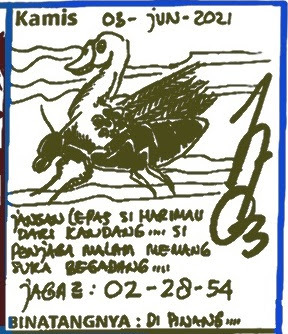 Kamis 03-JUN-2021
JANGAN LEPAS SI HARIMAU
DARI KANDANG.... SI
PENJAGA MALAM MEMANG
SUKA BEGADANG....
JAGA2: 02-28-54
BINATANGNYA: DI PINANG....